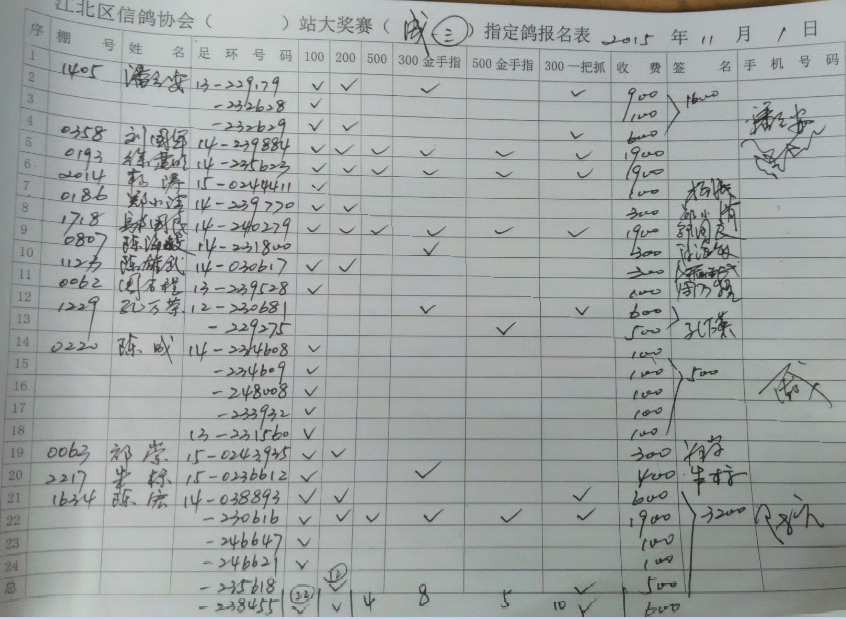 江北区信鸽协会（ ）站大奖赛（成三）指定鸽报名表 2015 年 11 月 1 日
序 棚 号 姓 名 足 环 号 码 100 200 500 300 金手指 500 金手指 300 一把抓 收 费 签 名 手 机 号 码
1 1405 13-229179 ✓ ✓ ✓ ✓ 900
2 -232628 ✓ 100 1600
3 -232629 ✓ ✓ ✓ 600
4 0358 刘国军 14-239884 ✓ ✓ ✓ ✓ ✓ ✓ 1900
5 0193 14-235623 ✓ ✓ ✓ ✓ ✓ ✓ 1900
6 2014 杨涛 15-0244411 ✓ 100
7 0186 14-239770 ✓ ✓ 300
8 1718 14-240279 ✓ ✓ ✓ ✓ ✓ ✓ 1900
9 0807 14-231800 ✓ 300
10 1123 14-030617 ✓ ✓ 300
11 0062 13-239528 ✓ 100
12 1229 孔万荣 12-230681 ✓ ✓ 600
13 -229275 ✓ 500
14 0220 陈成 14-2314608 ✓ 100
15 -234609 ✓ 100 500
16 -248008 ✓ 100
17 -233932 ✓ 100
18 13-231560 ✓ 100
19 0063 祁崇 15-0243935 ✓ ✓ 300
20 2217 朱栋 15-0236612 ✓ ✓ 400 朱栋
21 1634 陈宏 14-038893 ✓ ✓ ✓ 600
22 -230616 ✓ ✓ ✓ ✓ ✓ ✓ 1900 3200
23 -246647 ✓ 100
24 -246621 ✓ 100
总 -235618 22 12 ✓ 500
-238455 ✓ ✓ 4 8 5 10 ✓ 600